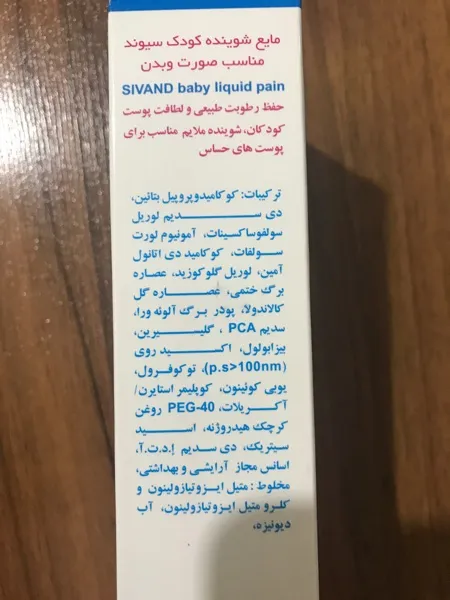 مایع شوینده کودک سیوند
مناسب صورت وبدن
SIVAND baby liquid pain
حفظ رطوبت طبیعی و لطافت پوست
کودکان، شوینده ملایم مناسب برای
پوست های حساس
ترکیبات: کوکامیدوپروپیل بتائین،
دی سدیم لوریل
سولفوساکسینات، آمونیوم لورت
سولفات، کوکامید دی اتانول
آمین، لوریل گلوکوزید، عصاره
برگ ختمی، عصاره گل
کالاندولا، پودر برگ آلوئه ورا،
سدیم PCA ، گلیسیرین،
بیزابولول، اکسید روی
(p.s>100nm)، توکوفرول،
یوبی کوئینون، کوپلیمر استایرن/
آکریلات، PEG-40 روغن
کرچک هیدروژنه، اسید
سیتریک، دی سدیم إ.د.ت.آ،
اسانس مجاز آرایشی و بهداشتی،
مخلوط : متیل ایزوتیازولینون و
کلرو متیل ایزوتیازولینون، آب
دیونیزه،